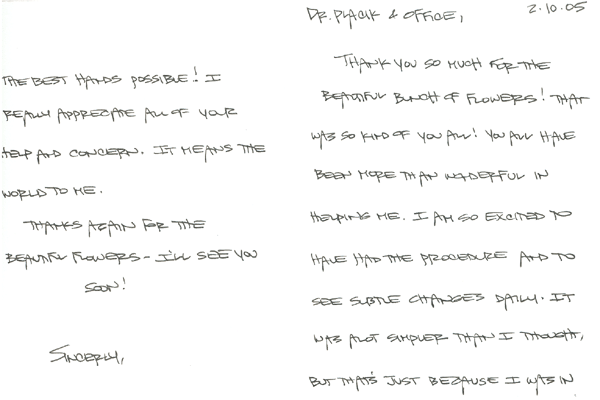 DR. PLACIK & OFFICE,
2.10.05
THANK YOU SO MUCH FOR THE
BEAUTIFUL BUNCH OF FLOWERS! THAT
WAS SO KIND OF YOU ALL! YOU ALL HAVE
BEEN MORE THAN WONDERFUL IN
HELPING ME. I AM SO EXCITED TO
HAVE HAD THE PROCEDURE AND TO
SEE SUBTLE CHANGES DAILY. IT
WAS ALOT SIMPLER THAN I THOUGHT,
BUT THAT'S JUST BECAUSE I WAS IN
THE BEST HANDS POSSIBLE! I
REALLY APPRECIATE ALL OF YOUR
HELP AND CONCERN. IT MEANS THE
WORLD TO ME.
THANKS AGAIN FOR THE
BEAUTIFUL FLOWERS - I'LL SEE YOU
SOON!
SINCERLY,